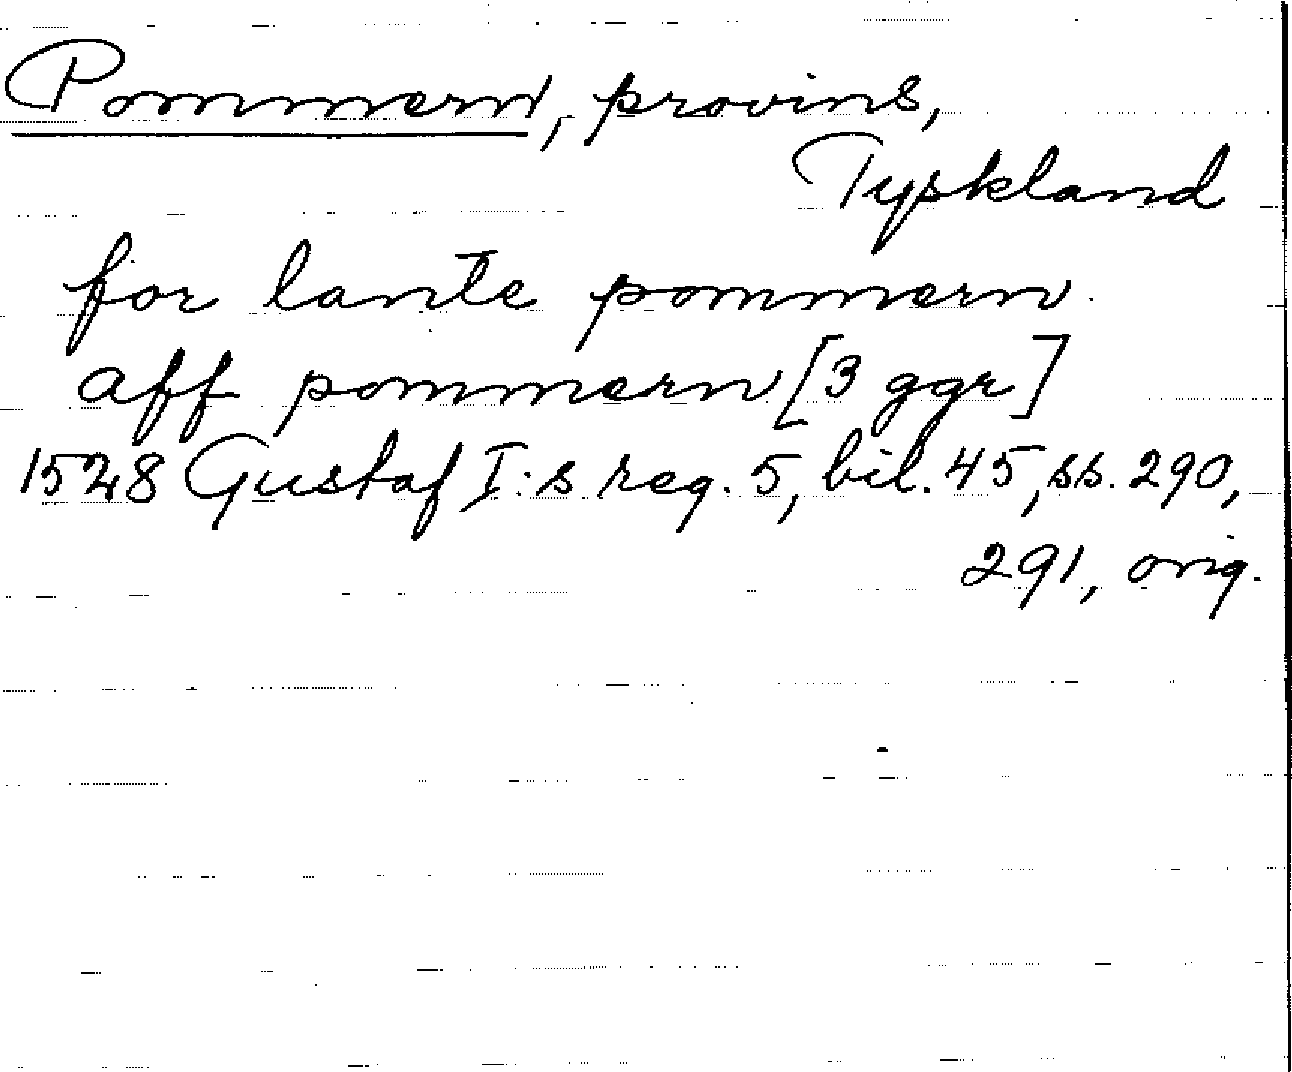 Pommern, provins,
Tyskland
for lante pommern
aff pommern [3 ggr]
1528 Gustaf I:s reg. 5, bil. 45, ss. 290,
291, orig.